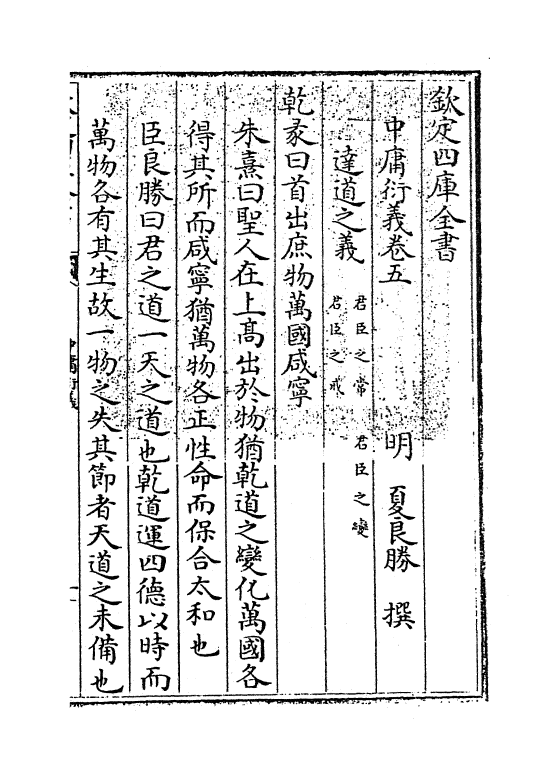 欽定四庫全書
中庸衍義卷五　明　夏良勝　撰
達道之義　君臣之常　君臣之變
君臣之戒
乾彖曰首出庶物萬國咸寧
朱熹曰聖人在上髙出於物猶乾道之變化萬國各
得其所而咸寧猶萬物各正性命而保合太和也
臣良勝曰君之道一天之道也乾道運四德以時而
萬物各有其生故一物之失其節者天道之未備也